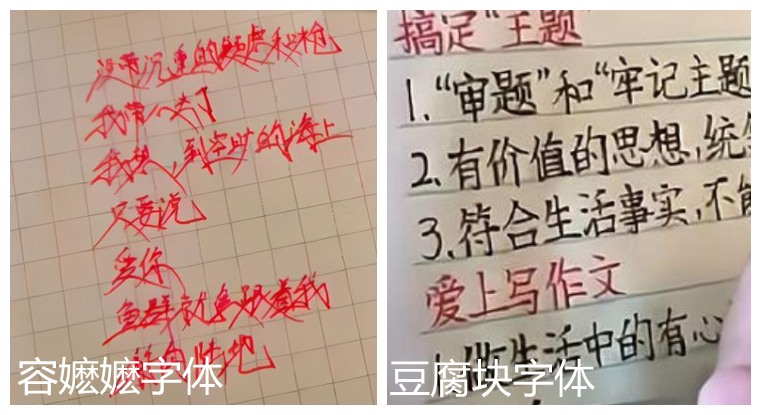 没带沉重的鱼虎和枪
我带人去了
我想，到空旷的海上
只要说
爱你
鱼群就会跟着我
陆地
容嬷嬷字体
搞定“主题”
1.“审题”和“牢记主题
2.有价值的思想，统
3.符合生活事实，不能
爱上写作文
1.做生活中的有心
豆腐块字体